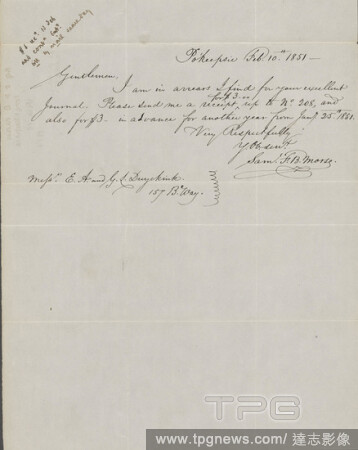 Pokeepsie Feb 10.th 1851 —
Gentlemen,
I am in arrears I find for your excellent
for $3 —
Journal. Please send me a receipt, up to No 208, and
also for $3 — in advance for another year from Jany 25th 1851.
Very Respectfully
Yr Ob Servt
Saml. F. B. Morse
Messrs. E. A and G. L Duyckinck
157 B.Way.
TPG
www.tpgnews.com/達志影像